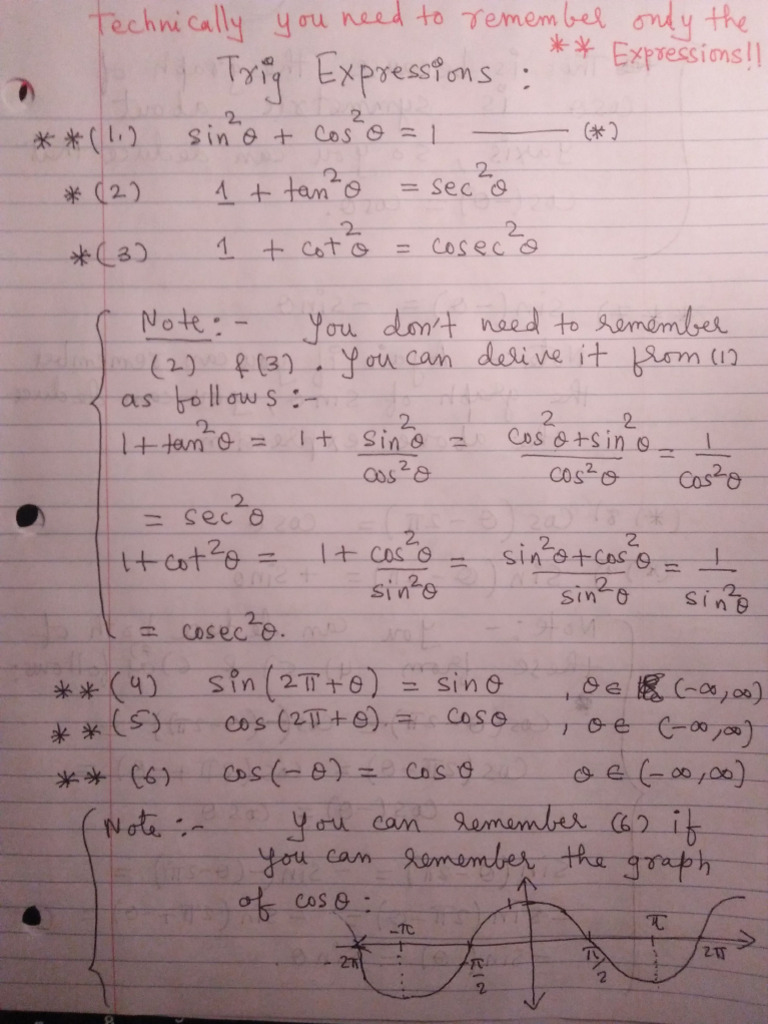 Technically you need to remember only the
** Expressions!!
Trig Expressions :
**(1.) sin²θ + cos²θ = 1 ——— (*)
*(2) 1 + tan²θ = sec²θ
*(3) 1 + cot²θ = cosec²θ
Note:- You don't need to remember
(2) & (3). You can derive it from (1)
as follows :-
1+tan²θ = 1 + sin²θ/cos²θ = cos²θ+sin²θ/cos²θ = 1/cos²θ
= sec²θ
1+cot²θ = 1 + cos²θ/sin²θ = sin²θ+cos²θ/sin²θ = 1/sin²θ
= cosec²θ.
**(4) sin(2π+θ) = sinθ , θ ∈ (-∞,∞)
**(5) cos(2π+θ) = cosθ , θ ∈ (-∞,∞)
**(6) cos(-θ) = cosθ θ ∈ (-∞,∞)
Note :- You can remember (6) if
you can remember the graph
of cosθ :
-2π -π -π/2 π/2 π 2π